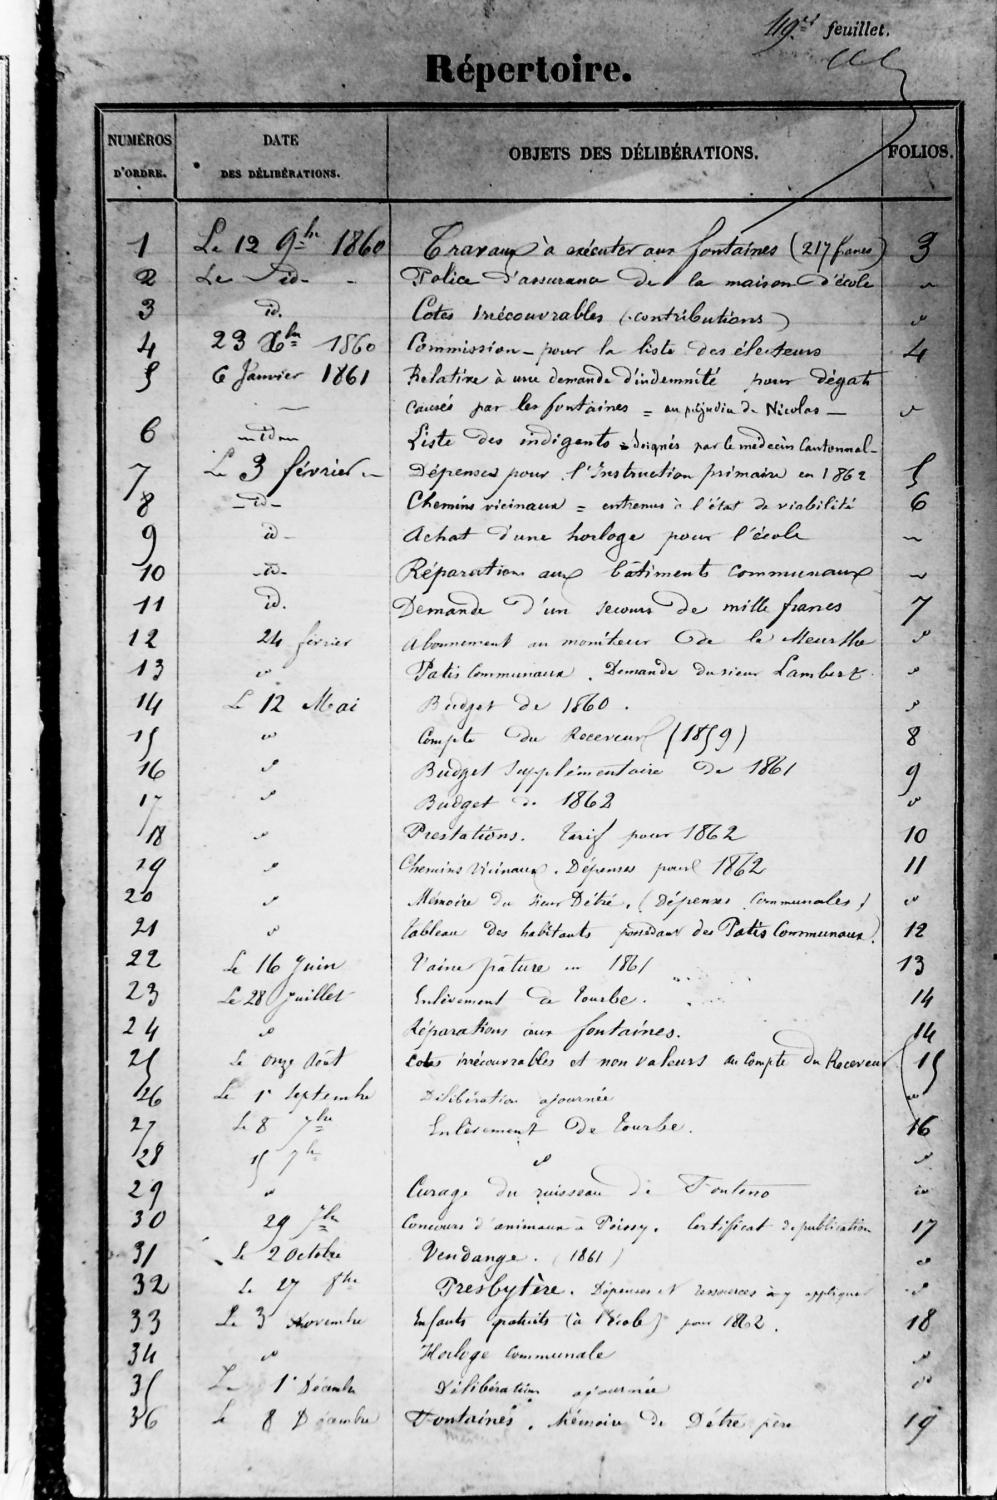 49.e feuillet.
Répertoire.
NUMÉROS D'ORDRE. DATE DES DÉLIBÉRATIONS. OBJETS DES DÉLIBÉRATIONS. FOLIOS.
1 Le 12 9bre 1860 Travaux à exécuter aux fontaines (217 francs) 3
2 Le id. Police d'assurance de la maison d'école "
3 id. Cotes irrécouvrables (contributions) "
4 23 Xbre 1860 Commission pour la liste des électeurs 4
5 6 Janvier 1861 Relative à une demande d'indemnité pour dégats
causés par les fontaines = au préjudice de Nicolas — "
6 — id — Liste des indigents = soignés par le medecin Cantonnal —
7 Le 3 février — Dépenses pour l'Instruction primaire en 1862 5
8 — id — Chemins vicinaux = entretenus à l'état de viabilité 6
9 id — Achat d'une horloge pour l'école "
10 — id — Réparations aux bâtiments communaux "
11 id. Demande d'un secours de mille francs 7
12 24 février Abonnement au moniteur de la Meurthe "
13 " Patis Communaux. Demande du sieur Lambert "
14 Le 12 Mai Budget de 1860. "
15 " Compte du Receveur (1859) 8
16 " Budget supplémentaire de 1861 9
17 " Budget de 1862 "
18 " Prestations. Tarif pour 1862 10
19 " Chemins Vicinaux. Dépenses pour 1862 11
20 " Mémoire du sieur Détré. (Dépenses Communales) "
21 " Tableau des habitants possédant des Patis Communaux). 12
22 Le 16 Juin Vaine pâture en 1861 13
23 Le 28 Juillet Enlèvement de Tourbe. 14
24 " Réparations aux fontaines. 14
25 Le onze Août Cotes irrécouvrables et non valeurs au Compte du Receveur 15
26 Le 1er Septembre Délibération ajournée "
27 Le 8 7bre Enlèvement de Tourbe. 16
28 15 7bre " "
29 " Curage du ruisseau de Fonteno "
30 29 7bre Concours d'animaux à Poissy. Certificat de publication 17
31 Le 2 Octobre Vendange. (1861) "
32 Le 27 8bre Presbytère. Dépenses et ressources à y appliquer "
33 Le 3 Novembre Enfants gratuits (à l'école) pour 1862. 18
34 " Horloge Communale "
35 Le 1er Décembre Délibération ajournée "
36 Le 8 Décembre Fontaines. Mémoire de Détré père 19